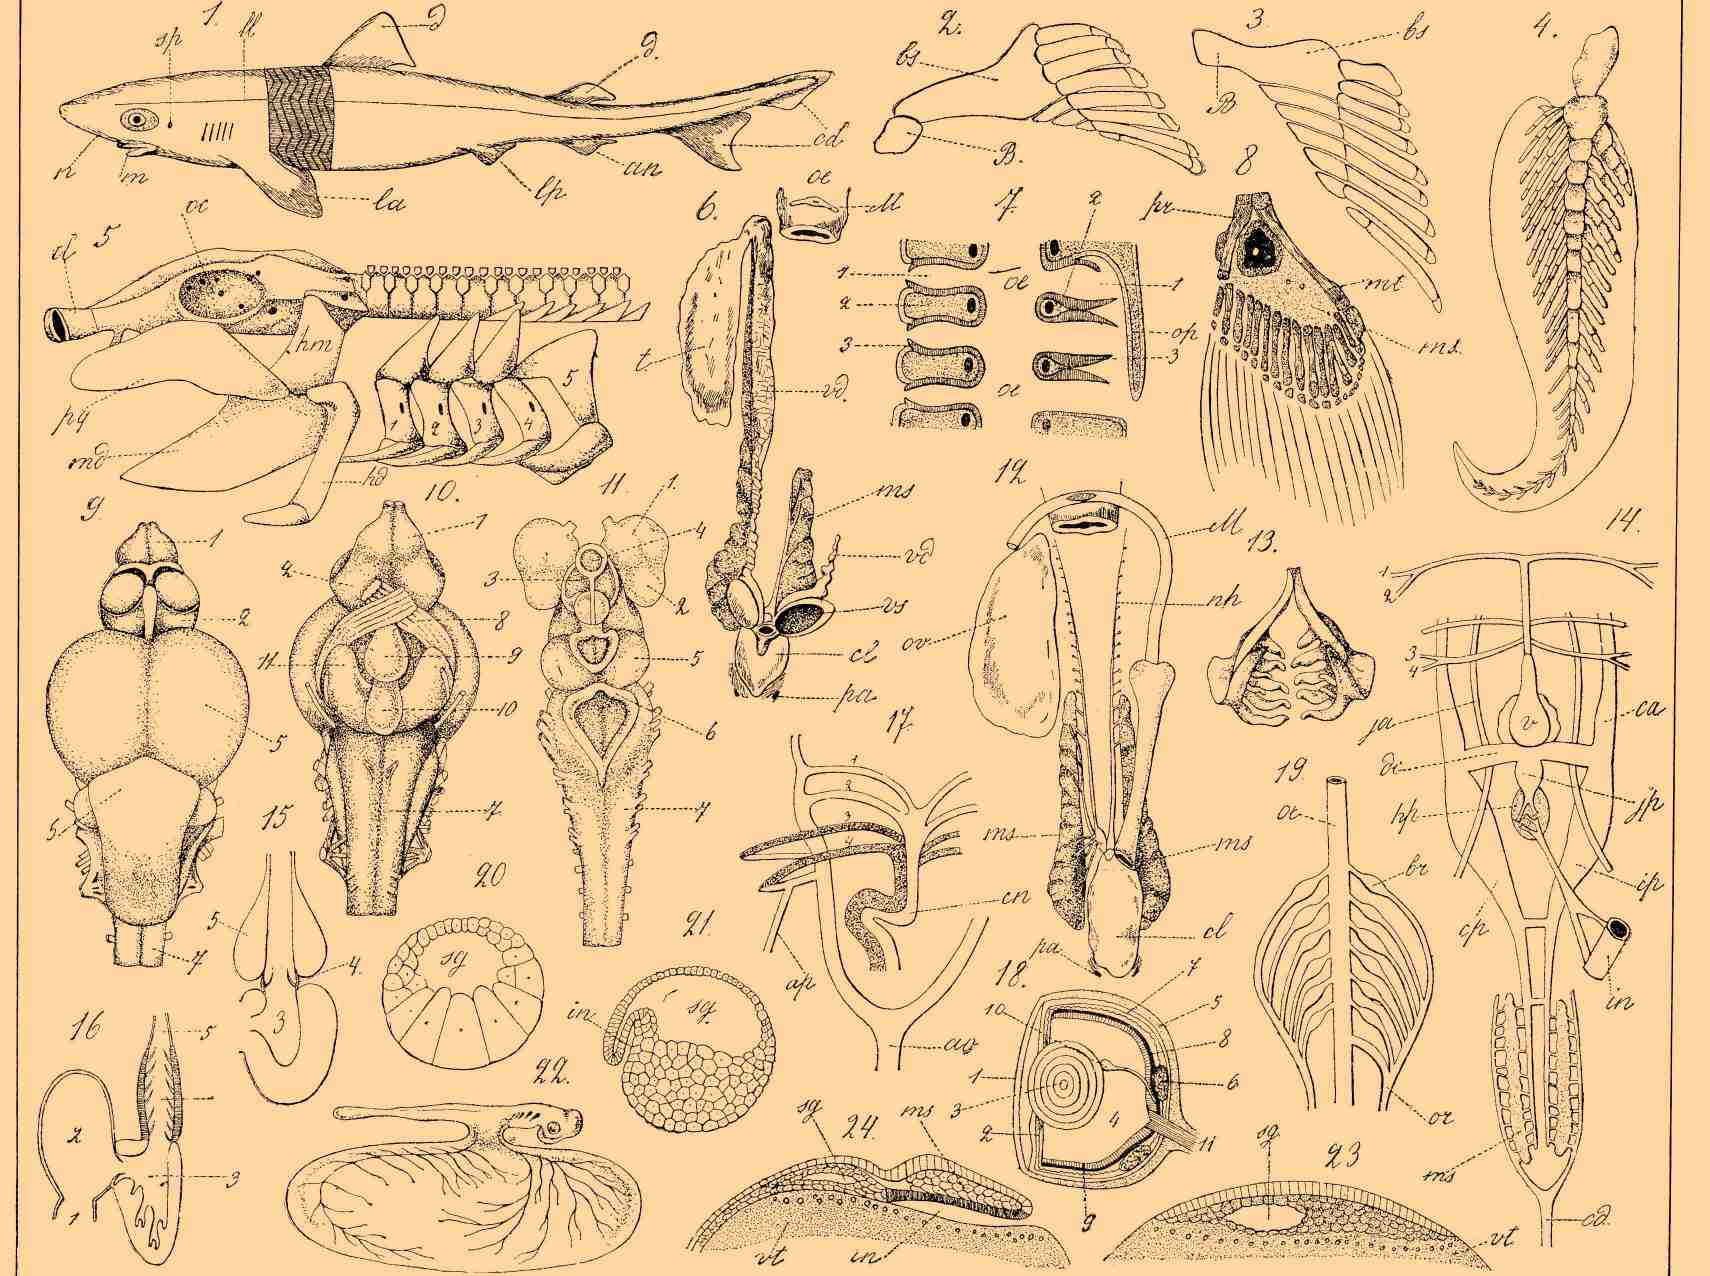 1.
sp
ll
d
d.
n
m
la
lp
an
cd
2.
bs
B.
3.
bs
B
4.
5
oc
hm
pq
md
hd
1
2
3
4
5
6.
oe
M
t
vd.
ms
vd
vs
cl
pa
7.
1
2
3
oe
oe
2
1
op
3
8
pr
mt
ms.
9
1
2
5
5.
7
10.
1
2
8
9
11
10
7
11.
1.
4
3
2
5
6
7
12
M
nh
ov
ms
ms
cl
pa
13.
14.
1
2
3
4
v
ca
ja
dc
hp
jp
ip
cp
in
ms
cd.
15
5
4.
3
16
5
2
3
1
17.
1
2
3
4
cn
ap
ao
18.
7
10
5
8
1
6
3
4
2
11
9
19.
oe
br
or
20
sg
21.
in
sg.
22.
23
sg
vt
24.
sg
ms
vt
in